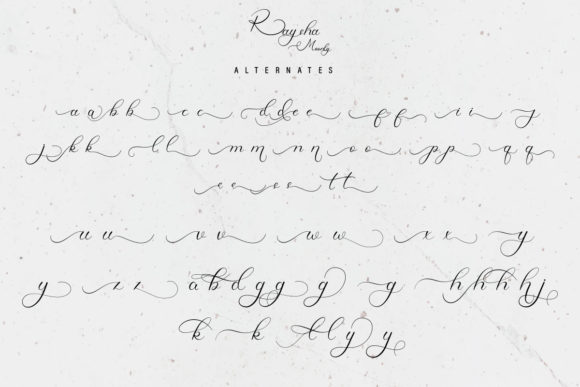 Raysha
Mounly
ALTERNATES
a a b b c c d d e e f f i i j
j k k l l m m n n o o p p q q
t t
u u v v w w x x y
y z z a b d g g g g h h h h j
k k l y y